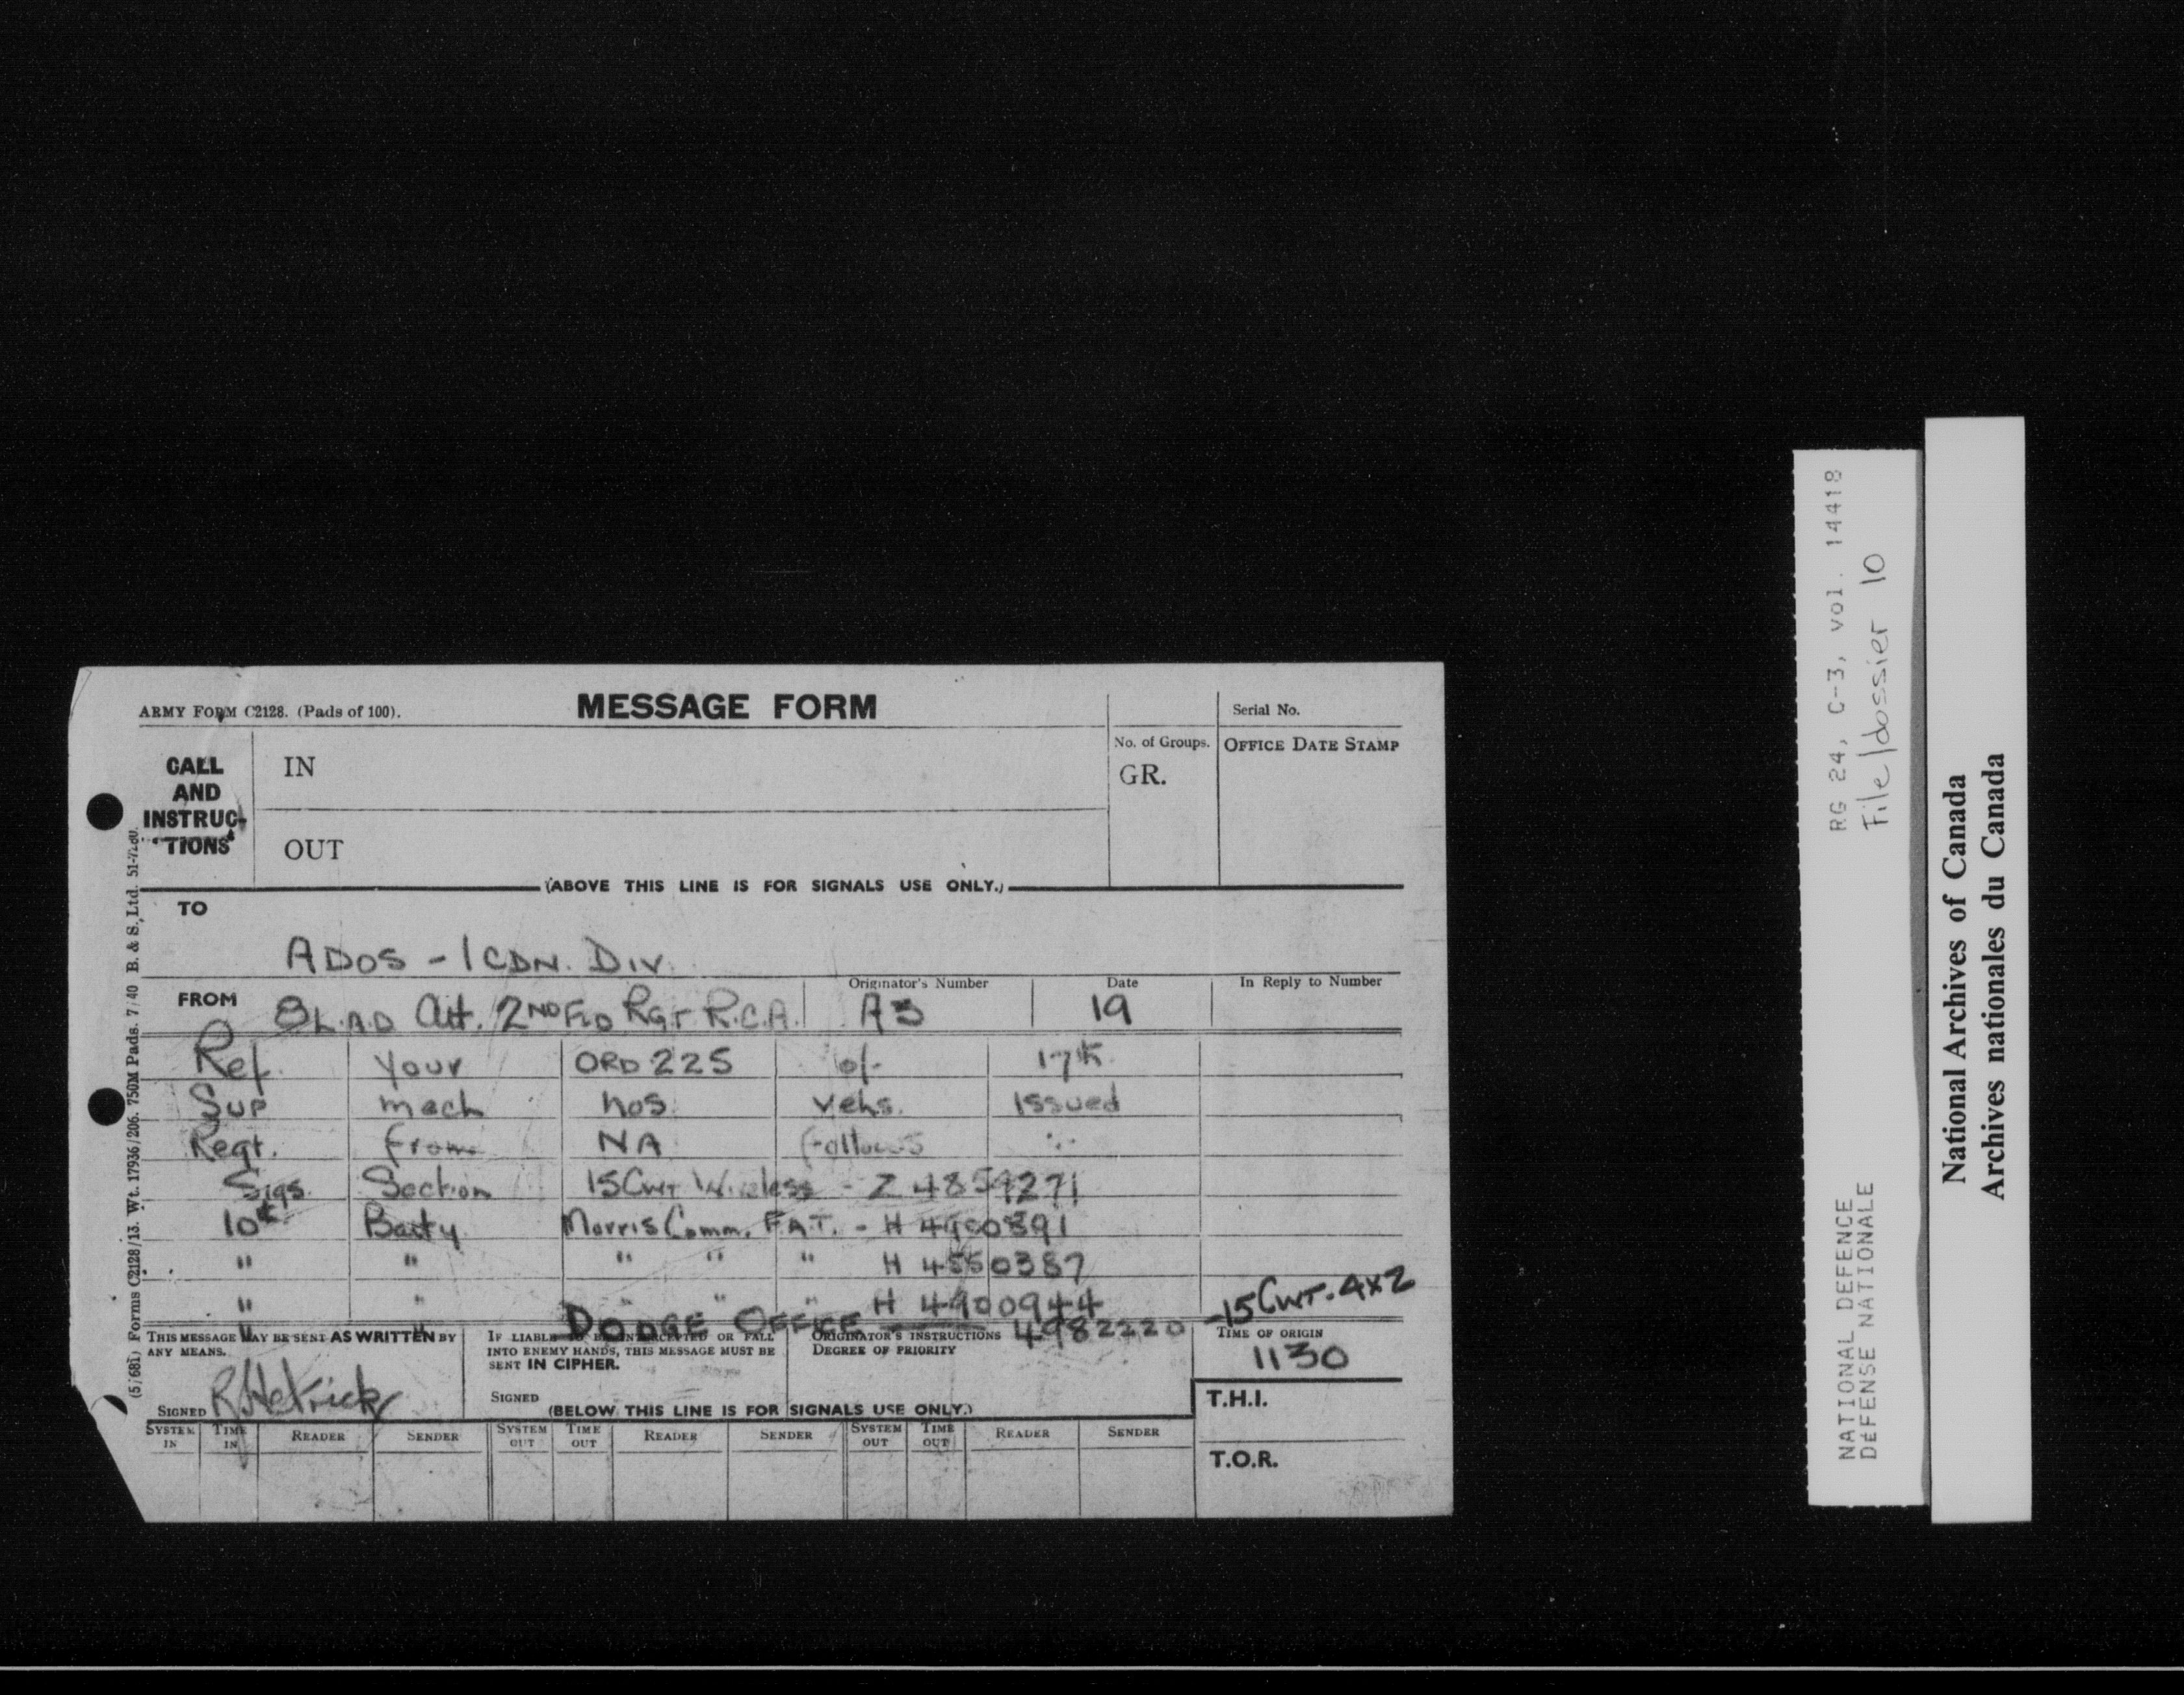 ARMY FORM C2128. (Pads of 100).
MESSAGE FORM
Serial No.
CALL AND INSTRUC-TIONS
IN
No. of Groups.
GR.
OFFICE DATE STAMP
OUT
(ABOVE THIS LINE IS FOR SIGNALS USE ONLY.)
TO
ADOS - 1 CDN. DIV.
FROM
8 L.A.D Att. 2ND FLD RGT R.C.A.
Originator's Number
A3
Date
19
In Reply to Number
Ref. Your ORD 225 of 17th
Sup mech nos. vehs. issued
Regt. from NA follows :-
Sigs. Section 15 Cwt Wireless - Z 4859271
10th Batty Morris Comm. F.A.T. - H 4900891
" " " " " H 4550387
" " " " " H 4900944
" " DODGE OFFICE 4982220 - 15 CWT. 4X2
THIS MESSAGE MAY BE SENT AS WRITTEN BY ANY MEANS.
SIGNED R Hetrick
IF LIABLE TO BE INTERCEPTED OR FALL INTO ENEMY HANDS, THIS MESSAGE MUST BE SENT IN CIPHER.
SIGNED
ORIGINATOR'S INSTRUCTIONS
DEGREE OF PRIORITY
TIME OF ORIGIN
1130
T.H.I.
T.O.R.
(BELOW THIS LINE IS FOR SIGNALS USE ONLY.)
SYSTEM IN TIME IN READER SENDER SYSTEM OUT TIME OUT READER SENDER SYSTEM OUT TIME OUT READER SENDER
(5/681) Forms C2128/13. Wt. 17936/206. 750M Pads. 7/40 B. & S. Ltd.
RG 24, C-3, vol. 14418
File/dossier 10
NATIONAL DEFENCE
DÉFENSE NATIONALE
National Archives of Canada
Archives nationales du Canada